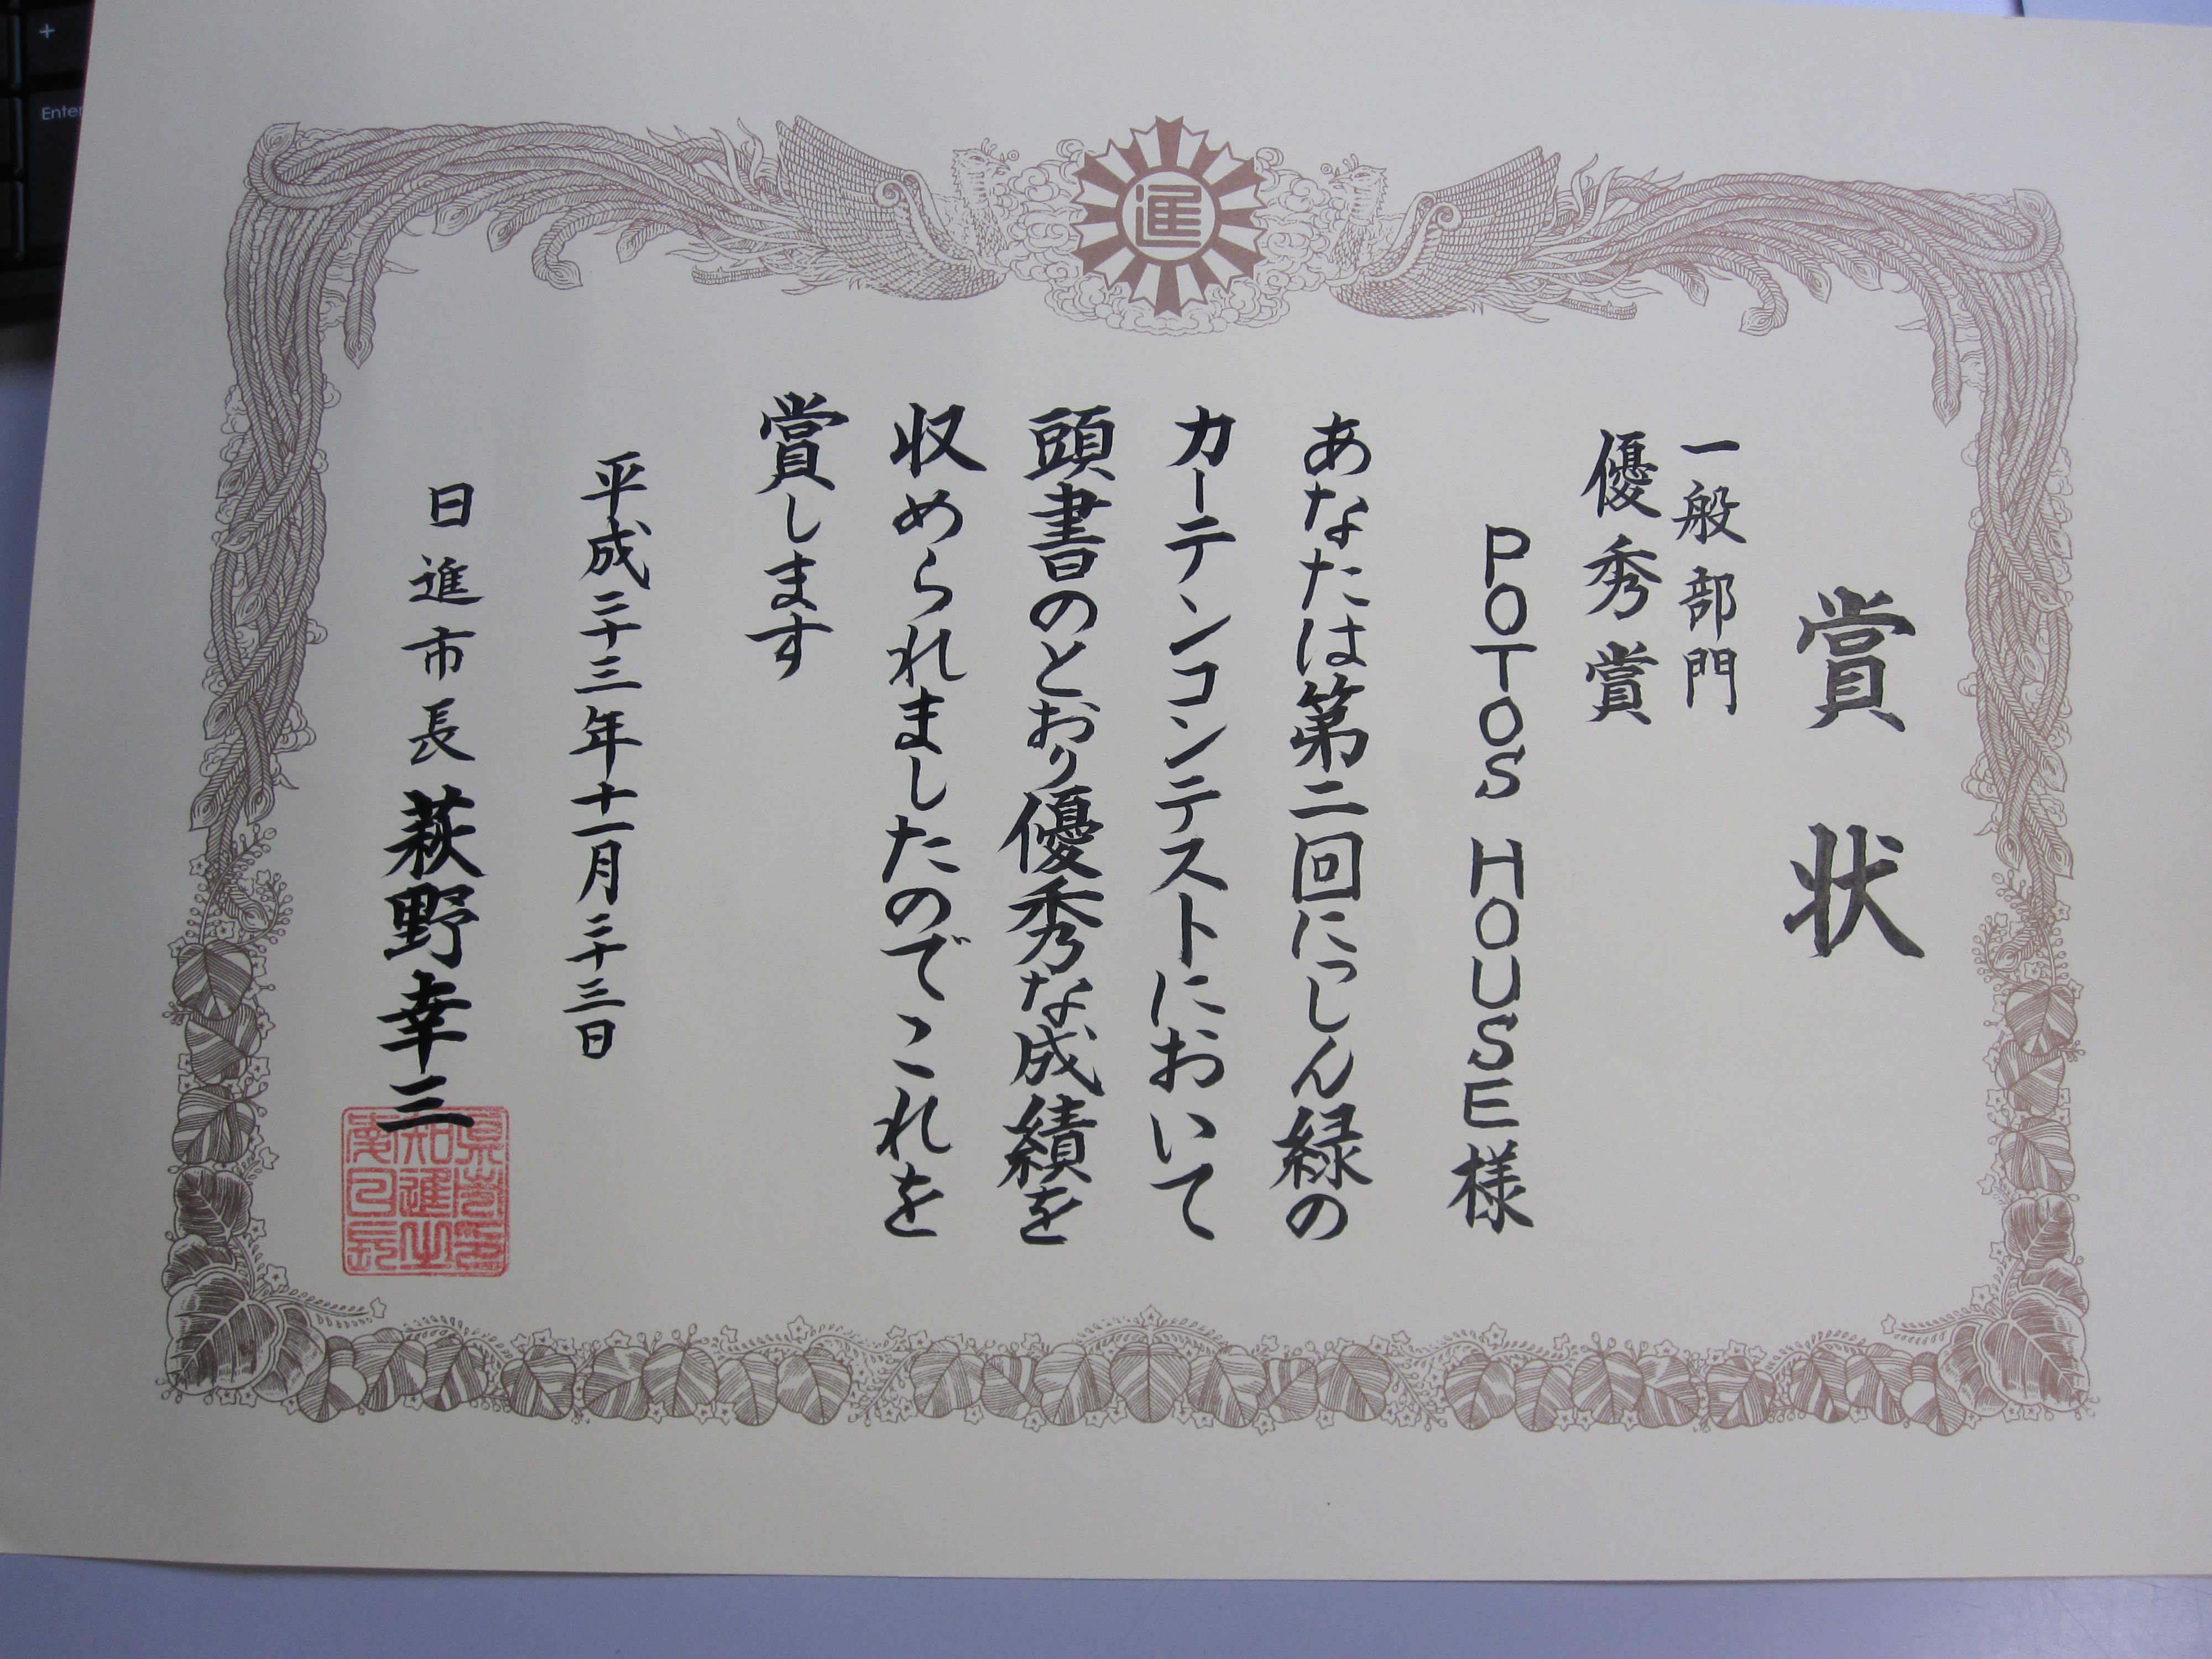 賞状
一般部門
優秀賞
POTOS HOUSE様
あなたは第二回にっしん緑の
カーテンコンテストにおいて
頭書のとおり優秀な成績を
収められましたのでこれを
賞します
平成二十三年十一月二十三日
日進市長 萩野幸三
進
Enter
+